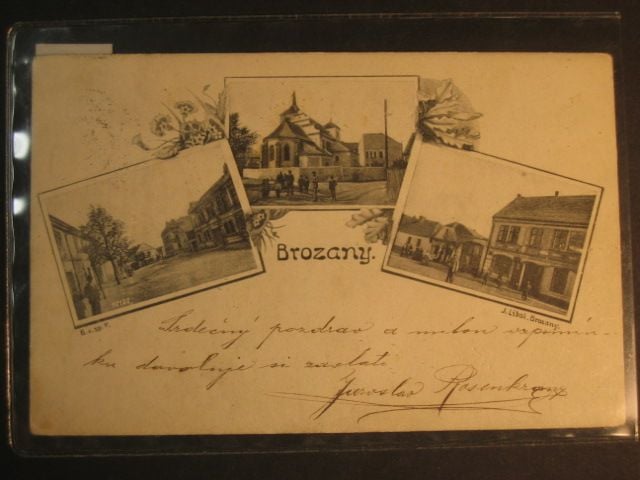 Brozany.
J. Libal. Brozany.
Srdečný pozdrav a milou vzpomín-
ku dovoluje si zaslati
Jaroslav Rosenkranz